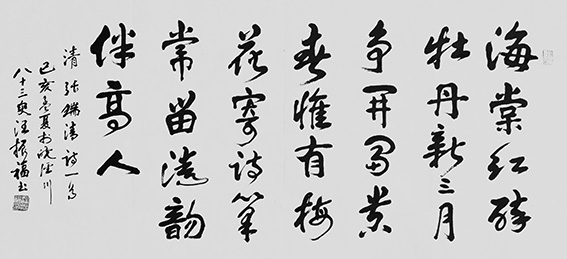 海棠红醉
牡丹新三月
争开富贵
春惟有梅
花寄诗笔
常留清韵
伴高人
清 张 清诗一首
己亥孟夏于 川
八十三叟汪振福书